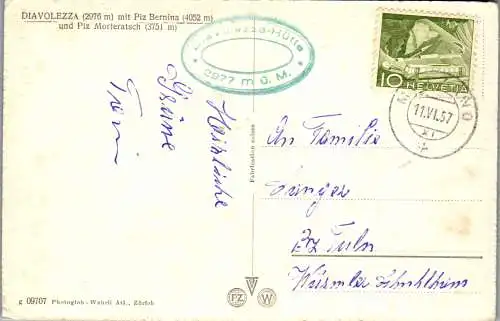 DIAVOLEZZA (2976 m) mit Piz Bernina (4052 m)
und Piz Morteratsch (3751 m)
Diavolezza-Hütte
2977 m ü. M.
10 HELVETIA
11.VI.57
Herzliche
Grüße
Fabrikation suisse
An Familie
Tulln
g 09707 Photoglob-Wehrli AG., Zürich
PZ W